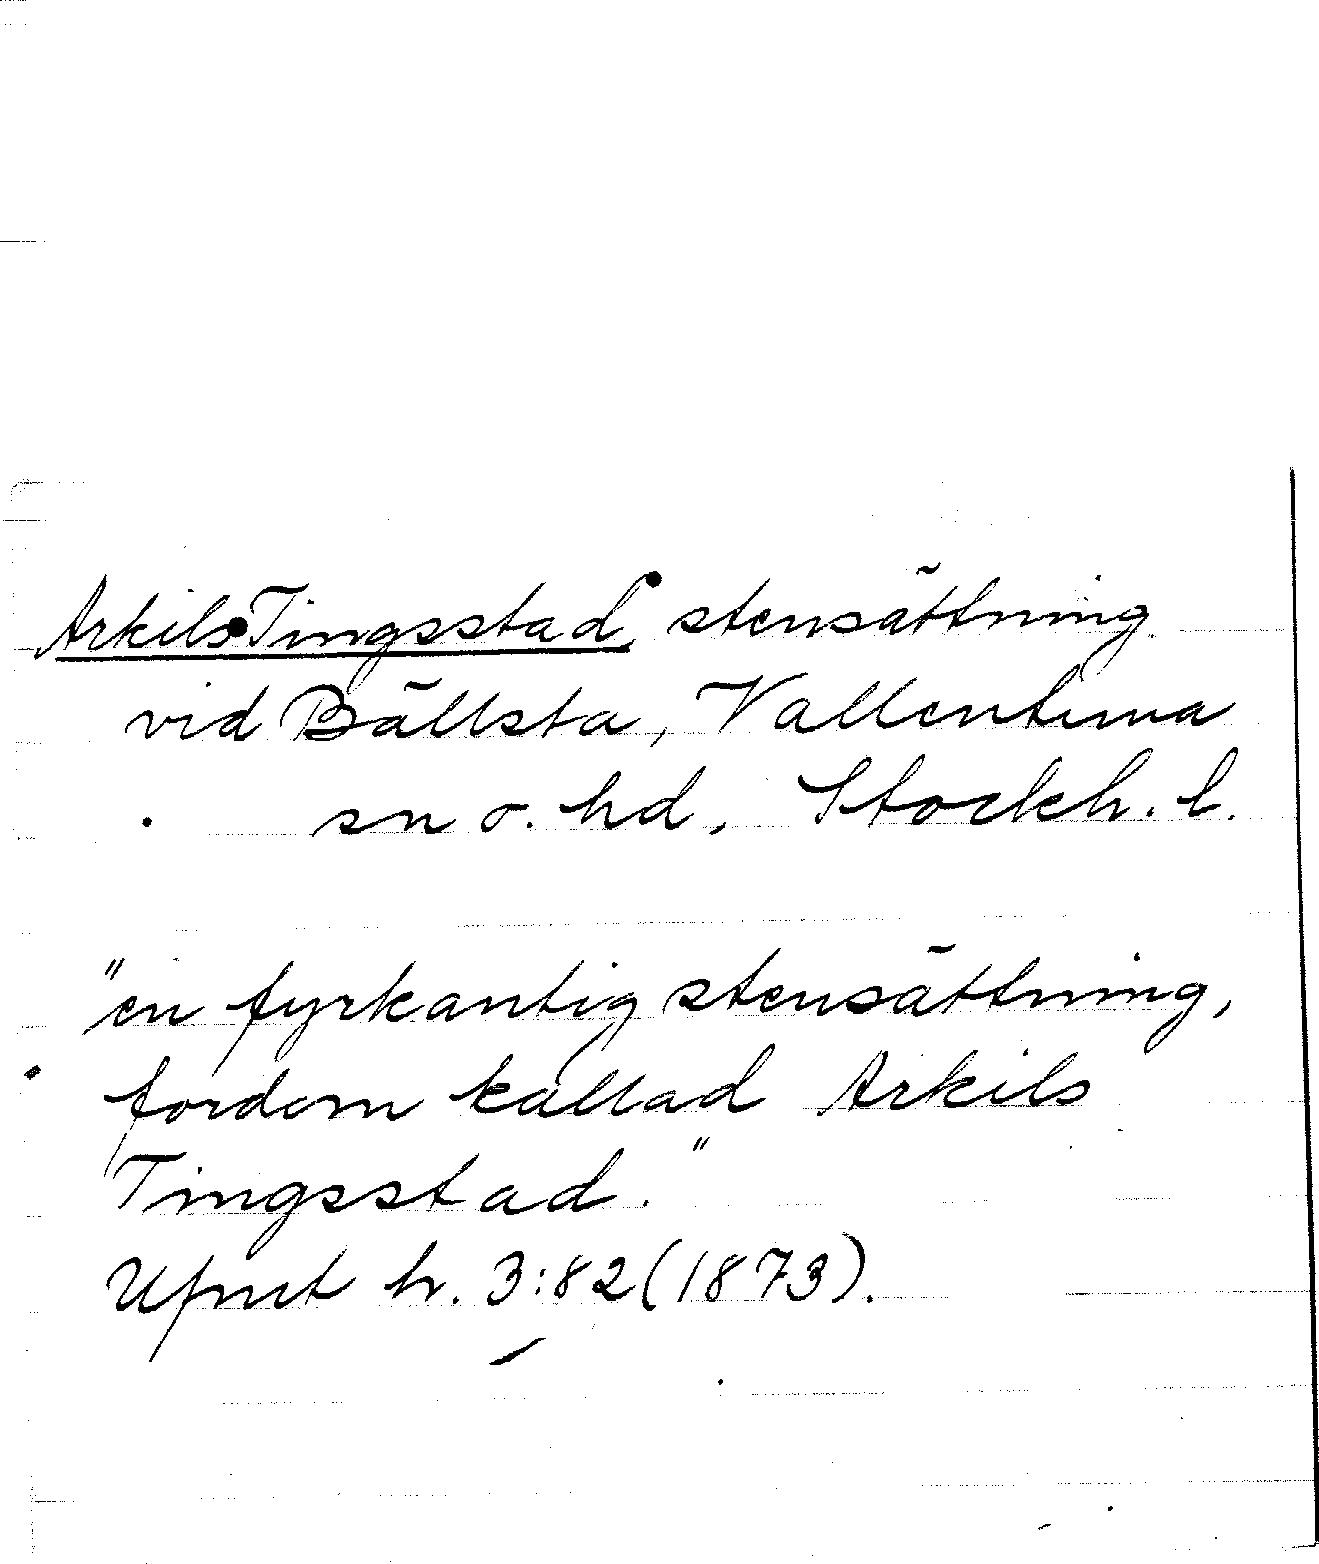 Arkils Tingsstad, stensättning
vid Bällsta, Vallentuna
sn o. hd, Stockh. l.
"en fyrkantig stensättning,
fordom kallad Arkils
Tingsstad."
Ufmt h. 3:82 (1873).